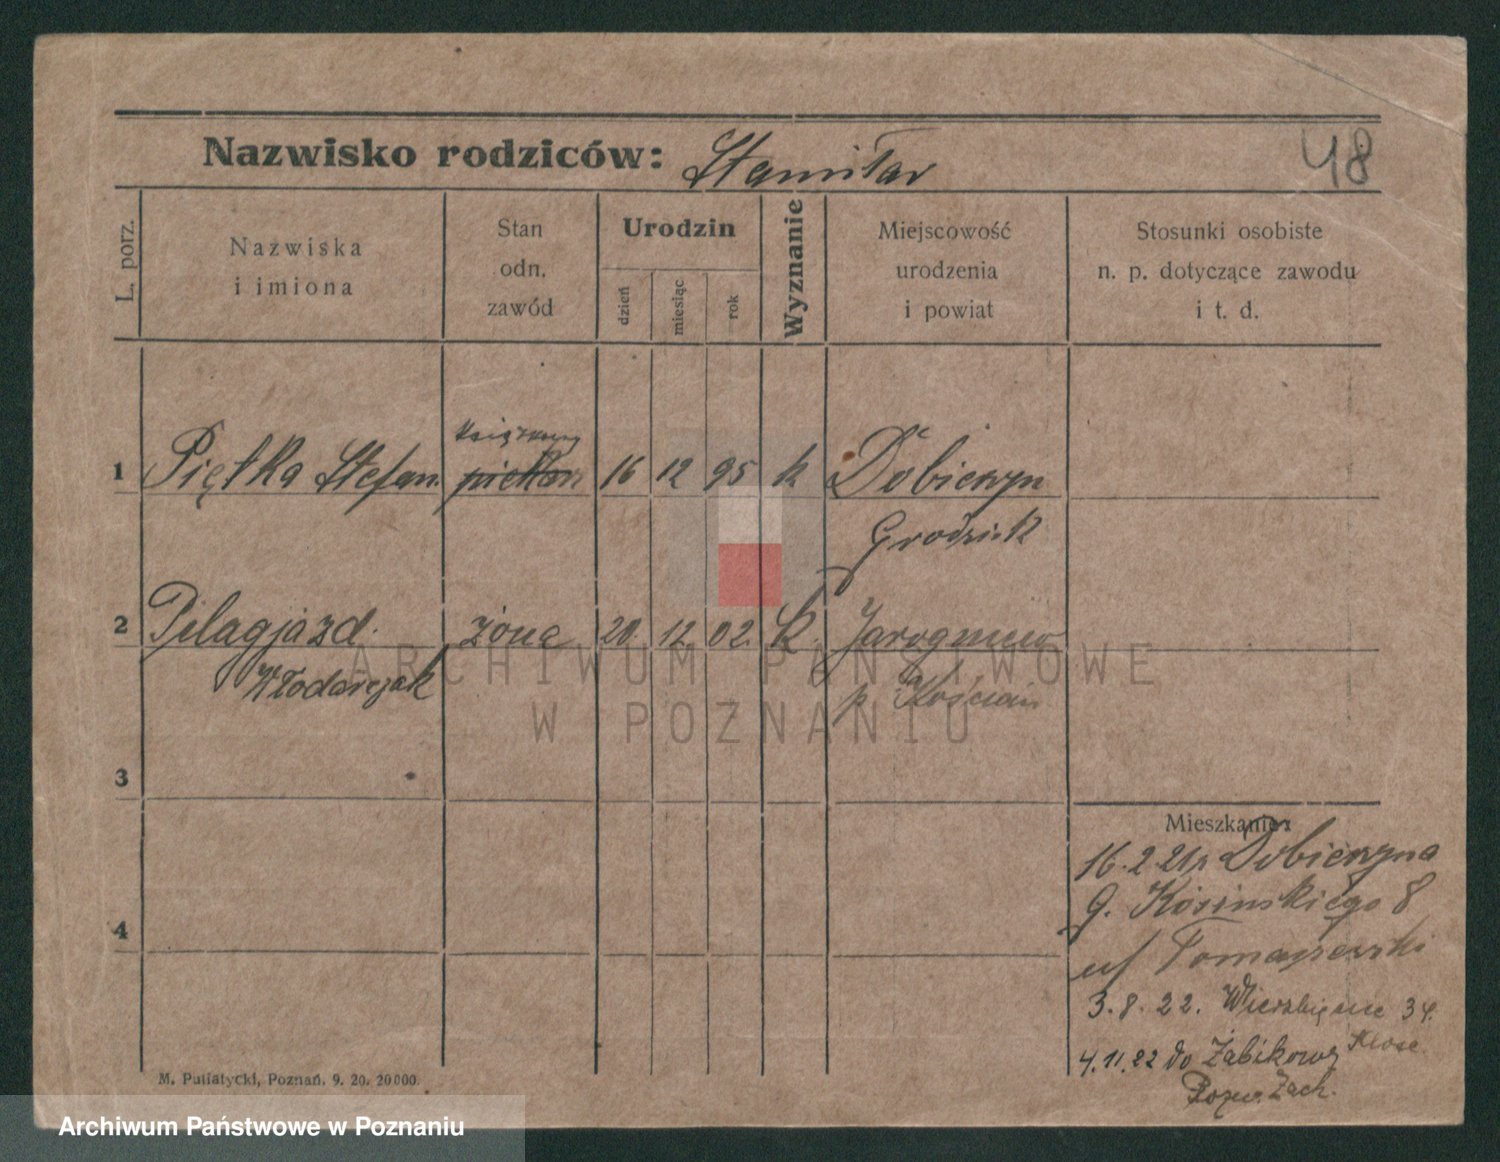 48
Nazwisko rodziców: Stanisław
L. porz.
Nazwiska
i imiona
Stan
odn.
zawód
Urodzin
dzień
miesiąc
rok
Wyznanie
Miejscowość
urodzenia
i powiat
Stosunki osobiste
n. p. dotyczące zawodu
i t. d.
księgowy
1 Piętka Stefan piekarz 16 12 95 k Dobieżyn
Grodzisk
2 Pelagja zd. żona 20. 12 02. k. Jarogniew
Włodarczak p Kościan
3
4
Mieszkanie:
16.2.21 Dobieżyna
G. Kosińskiego 8
u/ Tomaszewski
3.8.22. Wierzbięcice 34.
4.11.22 do Żabikowa
Pozn. Zach.
M. Putiatycki, Poznań. 9. 20. 20000.
ARCHIWUM PAŃSTWOWE
W POZNANIU
Archiwum Państwowe w Poznaniu